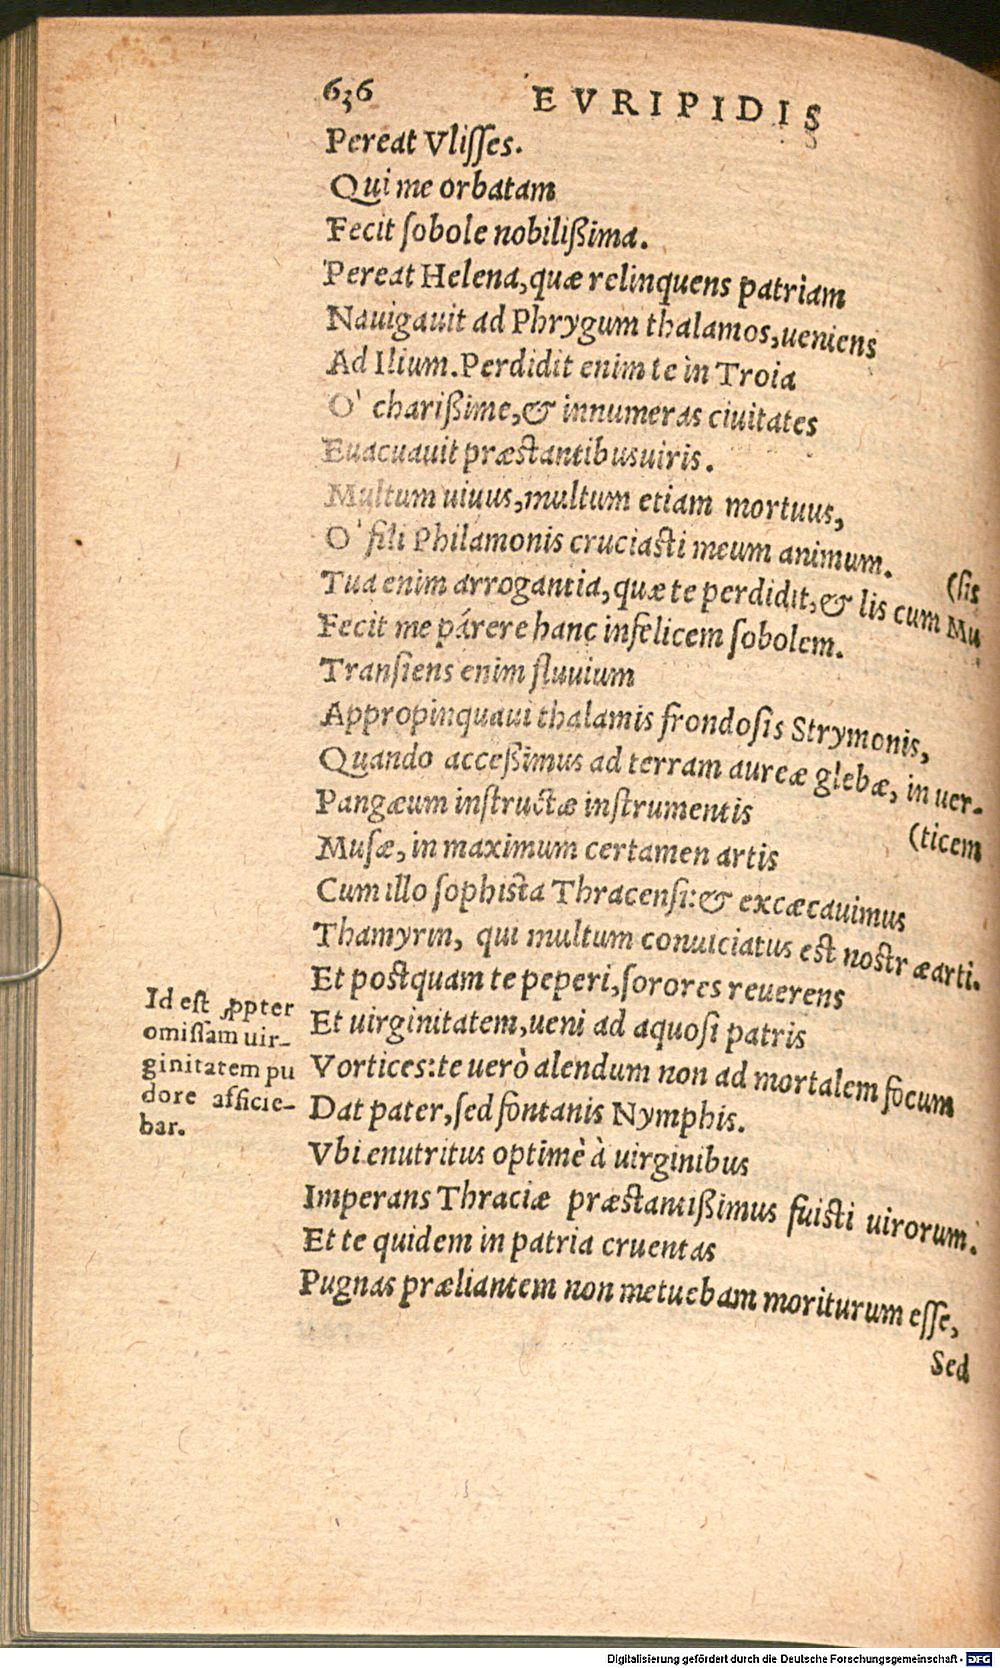 636 EVRIPIDIS
Pereat Vliſſes.
Qui me orbatam
Fecit ſobole nobilißima.
Pereat Helena, quæ relinquens patriam
Nauigauit ad Phrygum thalamos, ueniens
Ad Ilium. Perdidit enim te in Troia
O' charißime, & innumeras ciuitates
Euacuauit præstantibus uiris.
Multum uiuus, multum etiam mortuus,
O' fili Philamonis cruciasti meum animum.
Tua enim arrogantia, quæ te perdidit, & lis cum Mu
(ſis
Fecit me párere hanc infelicem ſobolem.
Tranſiens enim fluuium
Appropinquaui thalamis frondoſis Strymonis,
Quando acceßimus ad terram aureæ glebæ, in uer-
(ticem
Pangæum inſtructæ inſtrumentis
Muſæ, in maximum certamen artis
Cum illo ſophista Thracenſi: & excæcauimus
Thamyrin, qui multum conuiciatus est nostræ arti.
Et postquam te peperi, ſorores reuerens
Et uirginitatem, ueni ad aquoſi patris
Vortices: te uerò alendum non ad mortalem focum
Dat pater, ſed fontanis Nymphis.
Vbi enutritus optimè à uirginibus
Imperans Thraciæ præstantißimus fuisti uirorum.
Et te quidem in patria cruentas
Pugnas præliantem non metuebam moriturum eſſe,
Sed
Id est ꝓpter
omiſſam uir-
ginitatem pu
dore afficie-
bar.
Digitalisierung gefördert durch die Deutsche Forschungsgemeinschaft - DFG